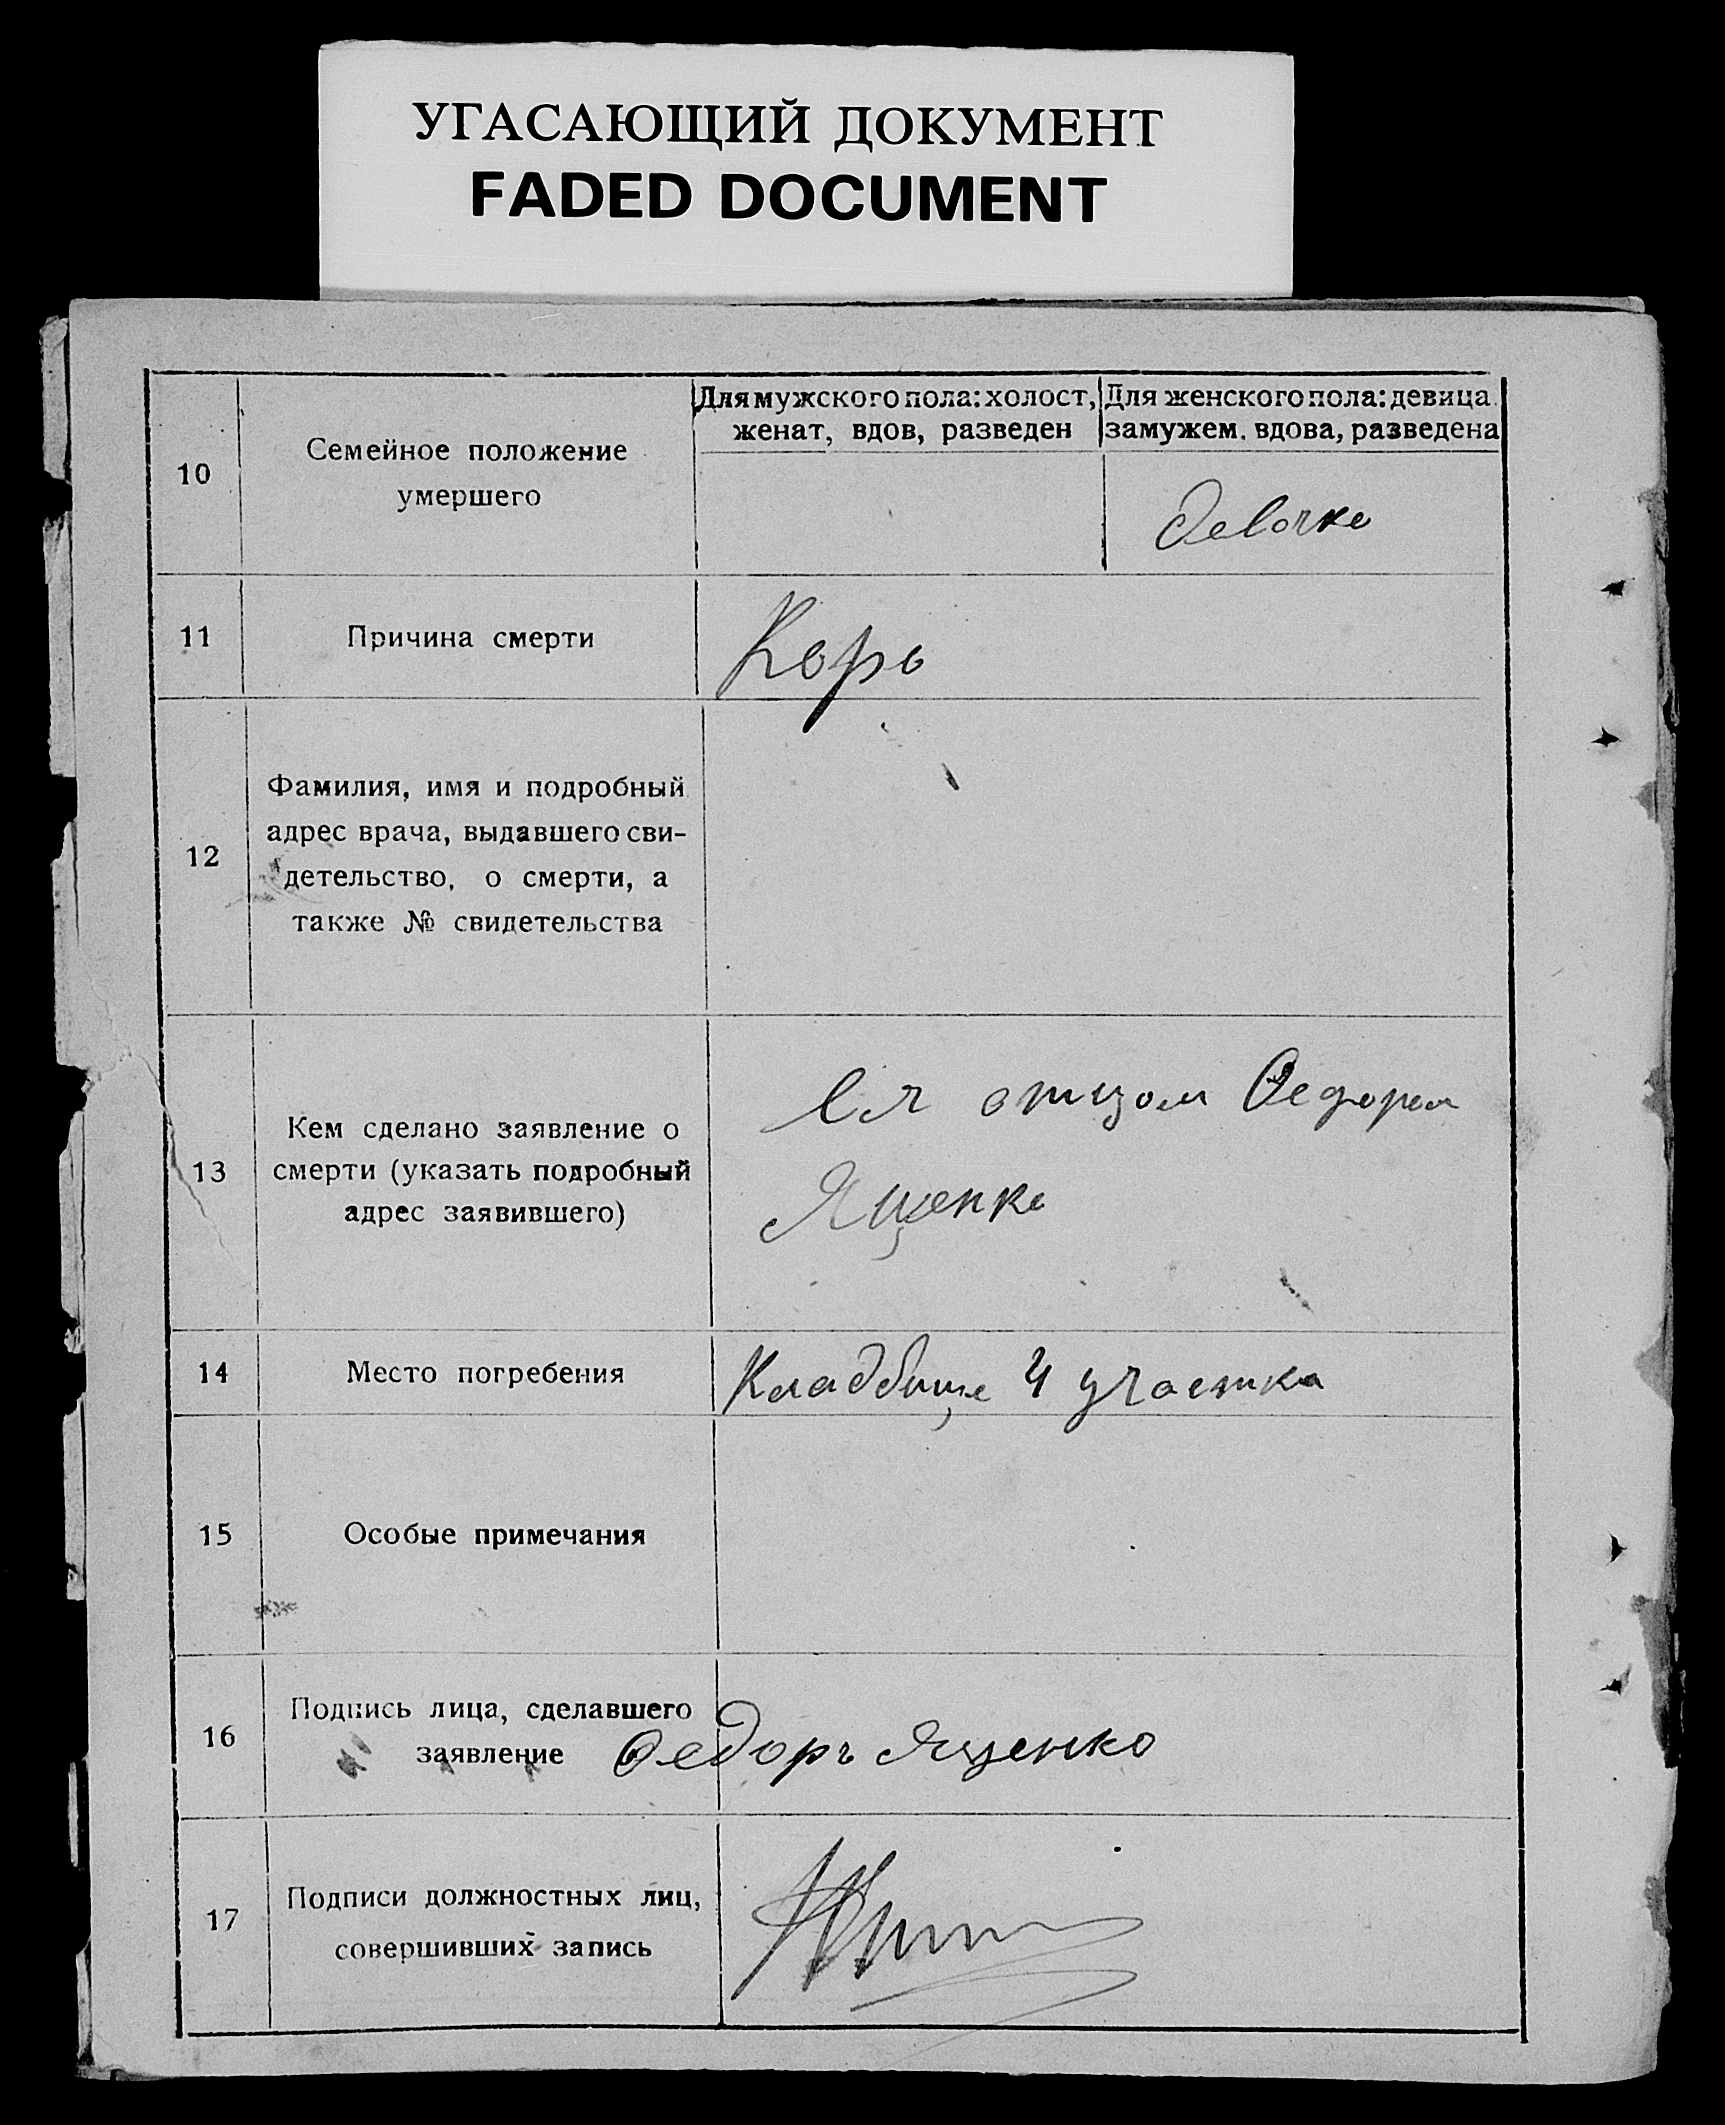 УГАСАЮЩИЙ ДОКУМЕНТ
FADED DOCUMENT
10
Семейное положение
умершего
Для мужского пола: холост,
женат, вдов, разведен
Для женского пола: девица
замужем, вдова, разведена
Девочка
11
Причина смерти
Корь
12
Фамилия, имя и подробный
адрес врача, выдавшего сви-
детельство, о смерти, а
также № свидетельства
13
Кем сделано заявление о
смерти (указать подробный
адрес заявившего)
Ея отцом Федором
Ященко
14
Место погребения
Кладбище 4 участка
15
Особые примечания
16
Подпись лица, сделавшего
заявление
Федоръ Ященко
17
Подписи должностных лиц,
совершивших запись